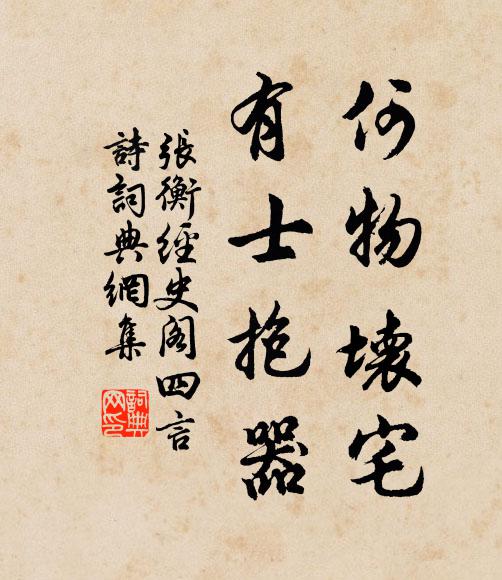 何物壞宅
有士抱器
張衡經史阁四言
詩詞典網集
詞典网印